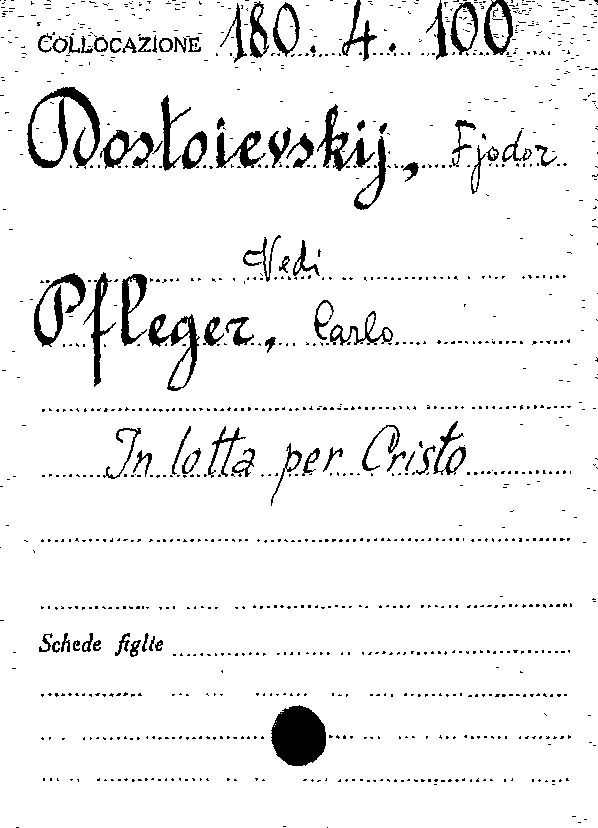 COLLOCAZIONE 180. 4. 100
Dostoievskij, Fjodor
Vedi
Pfleger, Carlo
In lotta per Cristo
Schede figlie